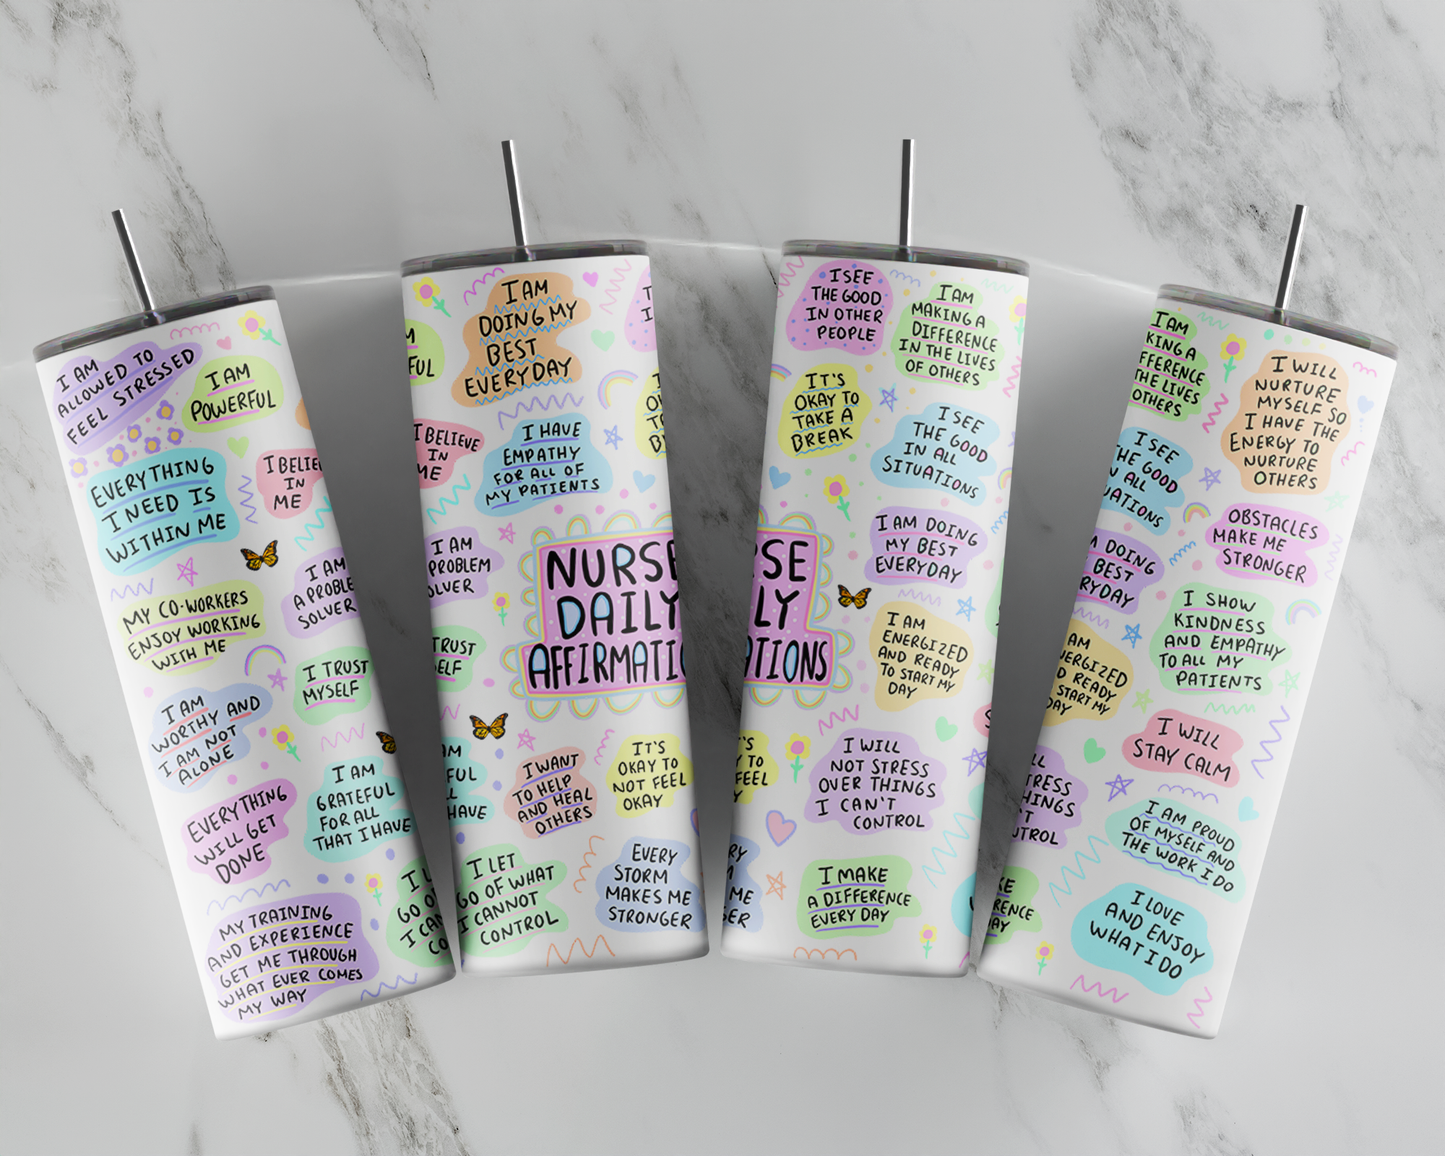 I AM
ALLOWED TO
FEEL STRESSED
I AM
POWERFUL
EVERYTHING
I NEED IS
WITHIN ME
I BELIE
IN
ME
MY CO-WORKERS
ENJOY WORKING
WITH ME
I AM
A PROBLE
SOLVER
I TRUST
MYSELF
I AM
WORTHY AND
I AM NOT
ALONE
EVERYTHING
WILL GET
DONE
I AM
GRATEFUL
FOR ALL
THAT I HAVE
MY TRAINING
AND EXPERIENCE
GET ME THROUGH
WHAT EVER COMES
MY WAY
I L
GO O
I CAN
CO
M
FUL
I AM
DOING MY
BEST
EVERYDAY
I BELIEVE
IN
ME
I HAVE
EMPATHY
FOR ALL OF
MY PATIENTS
I AM
PROBLEM
OLVER
NURSE
DAILY
AFFIRMATIO
TRUST
SELF
AM
FUL
LL
HAVE
I WANT
TO HELP
AND HEAL
OTHERS
IT'S
OKAY TO
NOT FEEL
OKAY
I LET
GO OF WHAT
I CANNOT
CONTROL
EVERY
STORM
MAKES ME
STRONGER
I SEE
THE GOOD
IN OTHER
PEOPLE
I AM
MAKING A
DIFFERENCE
IN THE LIVES
OF OTHERS
IT'S
OKAY TO
TAKE A
BREAK
I SEE
THE GOOD
IN ALL
SITUATIONS
I AM DOING
MY BEST
EVERYDAY
RSE
LY
ATIONS
I AM
ENERGIZED
AND READY
TO START MY
DAY
'S
Y TO
FEEL
Y
I WILL
NOT STRESS
OVER THINGS
I CAN'T
CONTROL
RY
M
ME
GER
I MAKE
A DIFFERENCE
EVERY DAY
I AM
KING A
FFERENCE
THE LIVES
OTHERS
I WILL
NURTURE
MYSELF SO
I HAVE THE
ENERGY TO
NURTURE
OTHERS
I SEE
HE GOOD
N ALL
UATIONS
OBSTACLES
MAKE ME
STRONGER
M DOING
BEST
RYDAY
I SHOW
KINDNESS
AND EMPATHY
TO ALL MY
PATIENTS
AM
ERGIZED
D READY
START MY
DAY
I WILL
STAY CALM
LL
TRESS
HINGS
'T
NTROL
I AM PROUD
OF MYSELF AND
THE WORK I DO
KE
RENCE
AY
I LOVE
AND ENJOY
WHAT I DO